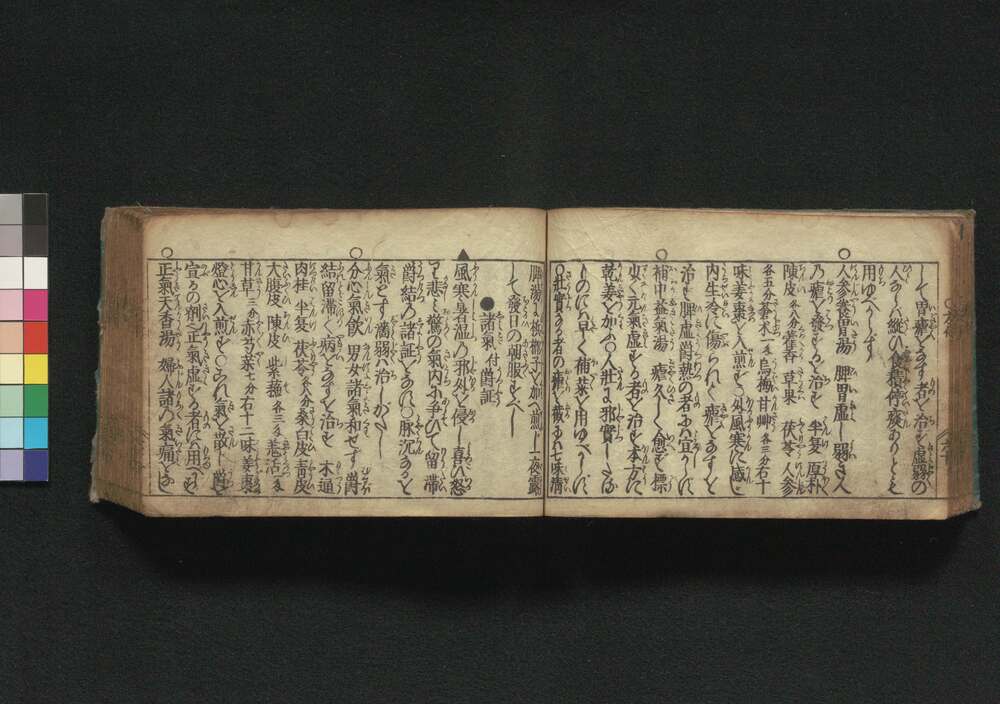 して胃瘧をなす者を治す虚弱の
人ならハ縦ひ食積停痰ありとも
用ゆへからず
○人参養胃湯 脾胃虚し弱き人
乃瘧を發するを治す 半夏 厚朴
陳皮 各八分 藿香 草果 茯苓 人参
各五分 蒼朮一匁 烏梅 甘艸 各三分 右十
味姜棗を入煎す 外風寒に感じ
内生冷に傷られて瘧をなすを
治す 脾虚鬱熱の者に宜からず
○補中益氣湯 瘧久しく愈ず標
虫く元氣虚する者を治す本方に
乾姜を加ふ○人壮に邪實したる
ものにハ早く補薬を用ゆべからず
○壮實なる者の瘧を截るにハ七味清
脾湯に檳榔子を加へ煎し上一夜露
して發日の朝服すべし
●諸氣 付鬱証
▲風寒暑湿の邪外を侵し喜ひ怒
り悲ミ驚の氣内に争ひて留滞
鬱結の諸証となれり○脉沉なるを
氣とす 濇弱ハ治しがたし
○分心氣飲 男女諸氣和せず 鬱
結留滞して病をなすを治す 木通
肉桂 半夏 茯苓 各八分 桑白皮 青皮
大腹皮 陳皮 紫蘇 各三分 羌活
甘草 三分 赤芍薬 七分 右十二味 姜棗
燈心を入煎す○これ氣を散し鬱を
宣るの剤 正氣虚する者にハ用べからず
○正氣天香湯 婦人諸の氣痛をな